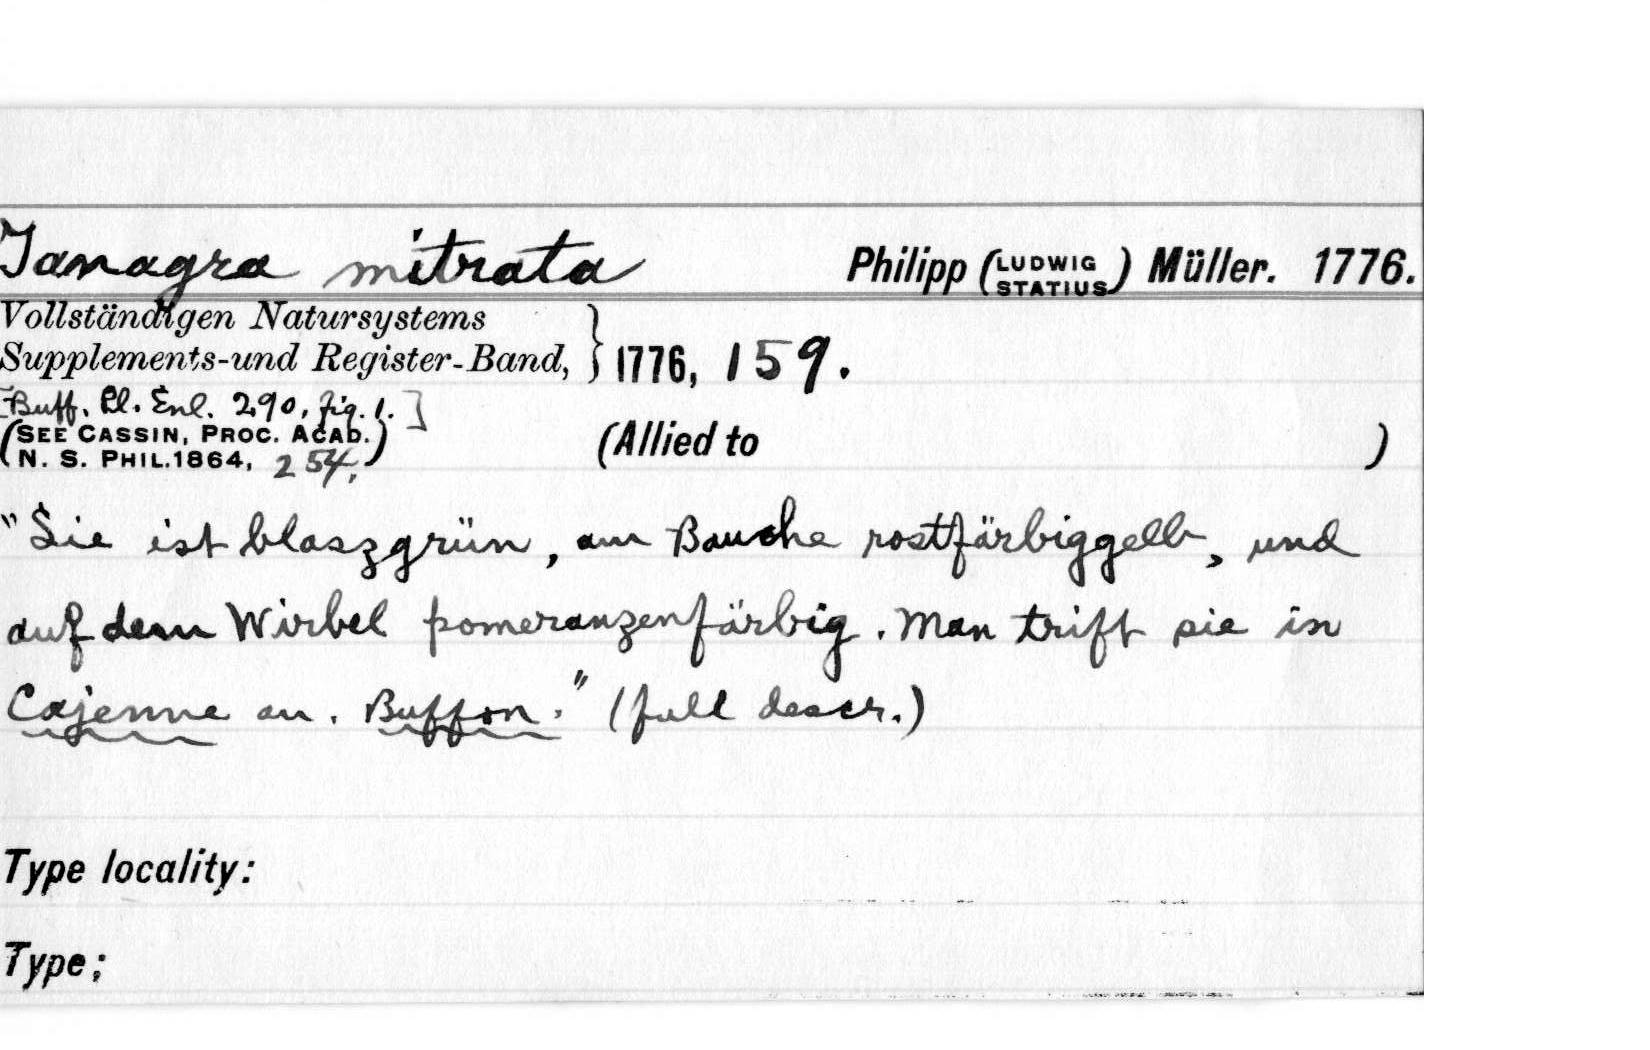 Tanagra mitrata Philipp (LUDWIG STATIUS) Müller. 1776.
Vollständigen Natursystems
Supplements-und Register-Band, } 1776, 159.
[Buff. Pl. Enl. 290, fig. 1.]
(SEE CASSIN, PROC. ACAD.
N. S. PHIL. 1864, 254.) (Allied to )
"Sie ist blaszgrün, am Bauche rostfärbiggelb, und
auf dem Wirbel pomeranzenfärbig. Man trift sie in
Cajenne an. Buffon." (full descr.)
Type locality:
Type;